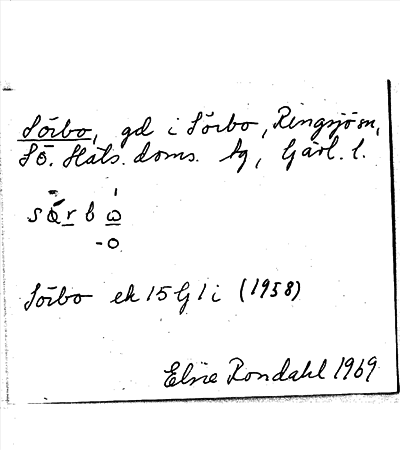 Sörbo, gd i Sörbo, Ringsjö sn,
Sö. Häls. doms. tg, Gävl. l.
sörbω
-o
Sörbo ek 15 G 1 i (1958)
Elsie Rondahl 1969